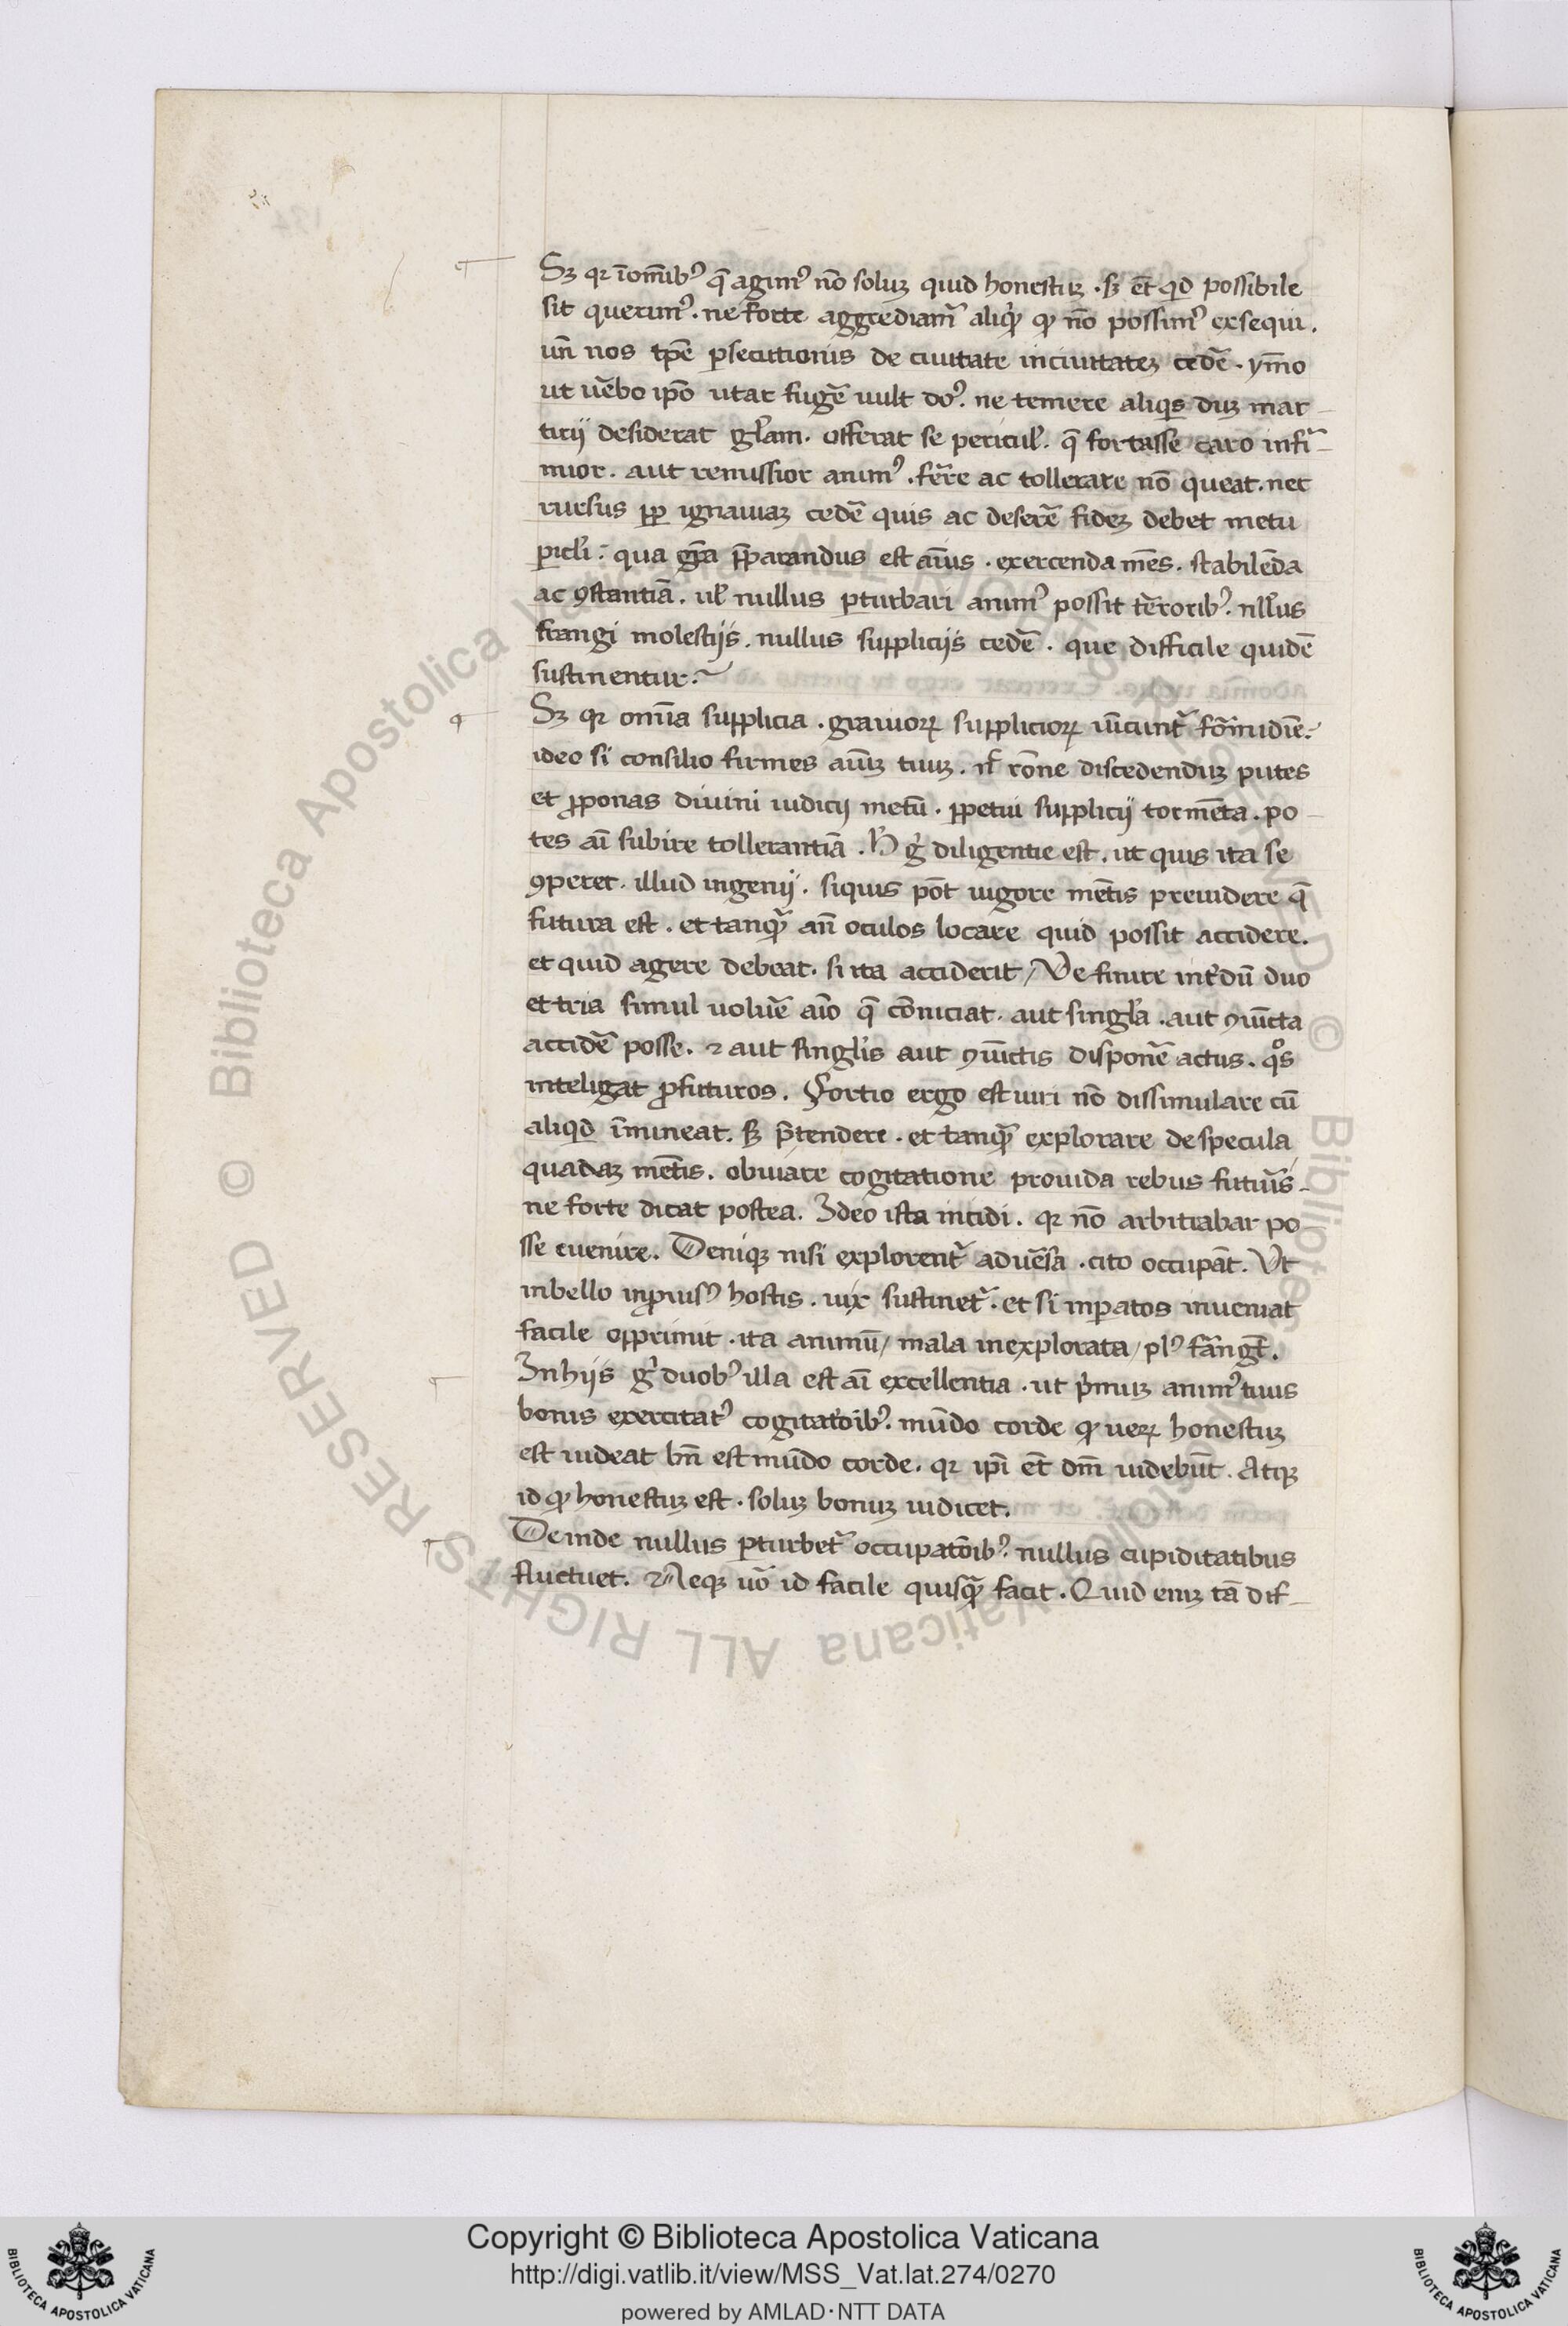 Sꝫ qꝛ ī om̄ibꝰ q̄ agimꝰ nō soluꝫ quid honestuꝫ . sꝫ et̄ qd̄ possibile
sit querimꝰ . ne forte aggrediam̄ aliqͩ qͩ nō possimꝰ exsequi .
un̄ nos tp̄e ꝑsecutionis de ciuitate in ciuitateꝫ cedē . ym̄o
ut ūbo ip̄o utar fugē uult do᷒ . ne temere aliqͥs duꝫ mar–
tirij desiderat gl̄am . offerat se pericul̄ . q̄ fortasse caro infir̄–
mior . aut remissior animꝰ . fer̄re ac tollerare nō queat . nec
rursus ꝓp̄ ignauiaꝫ cedē quis ac deserē fideꝫ debet metu
pic̄li : qua gr̄a p̄parandus est aīus . exercenda mēs . stabilēda
ac ꝯstantiā . ul̄ nullus ꝑturbari animꝰ possit t̄roribꝰ . nll̄us
frangi molestijs . nullus supplicijs cedē . que difficile quidē
sustinentur .
Sꝫ qꝛ om̄ia supplicia . grauioꝝ supplicioꝝ uīcunt̄ formidīe .
ideo si consilio firmes aīuꝫ tuuꝫ . n̄ rōne discedenduꝫ putes
et ꝓponas diuini iudicij metū . ꝑpetui supplicij tormēta . po–
tes aī subire tollerantiā . h̄ gͦ diligentie est . ut quis ita se
ꝯperet . illud ingenij . siquis pōt uigore mētis preuidere q̄
futura est . et tanqͣ̄ an̄ oculos locare quid possit accidere .
et quid agere debeat . si ita acciderit / De finire int̄dū duo
et tria simul uoluē aīo q̄ cōniciat . aut singl̄a . aut ꝯiūcta
accidē posse . ⁊ aut singl̄is aut ꝯiūctis disponē actus . qͦs
inteligat ꝓfuturos . Fortio ergo est uiri nō dissimulare cū
aliqd̄ īmineat . sꝫ p̄tendere . et tanqͣ̄ explorare de specula
quadaꝫ mētis . obuiare cogitatione prouida rebus futur̄is –
ne forte dicat postea . Ideo ista incidi . qꝛ nō arbitrabar po–
sse euenire . Deniqꝫ nisi explorent̄ aduēsa . cito occupāt . Ut
in bello inꝓuisꝰ hostis . uix sustinet̄ . et si inꝑatos inueniat
facile opprimit . ita animū / mala inexplorata / plꝰ frāngt̄ .
In hijs gͦ duobꝰ illa est aī excellentia . ut pͥmuꝫ animꝰ tuus
bonis exercitatꝰ cogitatōibꝰ . mūdo corde qͩ ueꝝ honestuꝫ
est uideat bn̄ est mūdo corde . qꝛ ip̄i et̄ dm̄ uidebūt . Atqꝫ
id qͩ honestuꝫ est . soluꝫ bonuꝫ iudicet .
Deinde nullus ꝑturbet̄ occupatōibꝰ . nullus cupiditatibus
fluctuet . Neqꝫ uō id facile quisqͣ̄ facit . Quid eniꝫ tā dif–
© Biblioteca Apostolica Vaticana ALL RIGHTS RESERVED
Copyright © Biblioteca Apostolica Vaticana
http://digi.vatlib.it/view/MSS_Vat.lat.274/0270
powered by AMLAD·NTT DATA
BIBLIOTECA APOSTOLICA VATICANA
BIBLIOTECA APOSTOLICA VATICANA